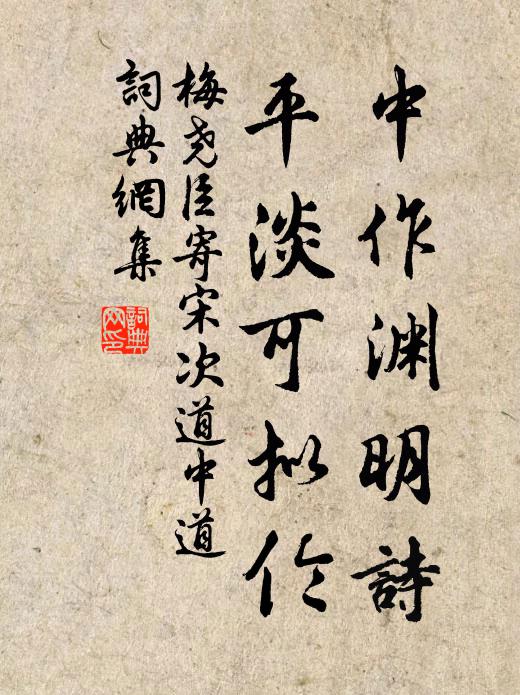 中作渊明詩
平淡可拟伦
梅尧臣寄宋次道中道
詞典網集
詞典网印